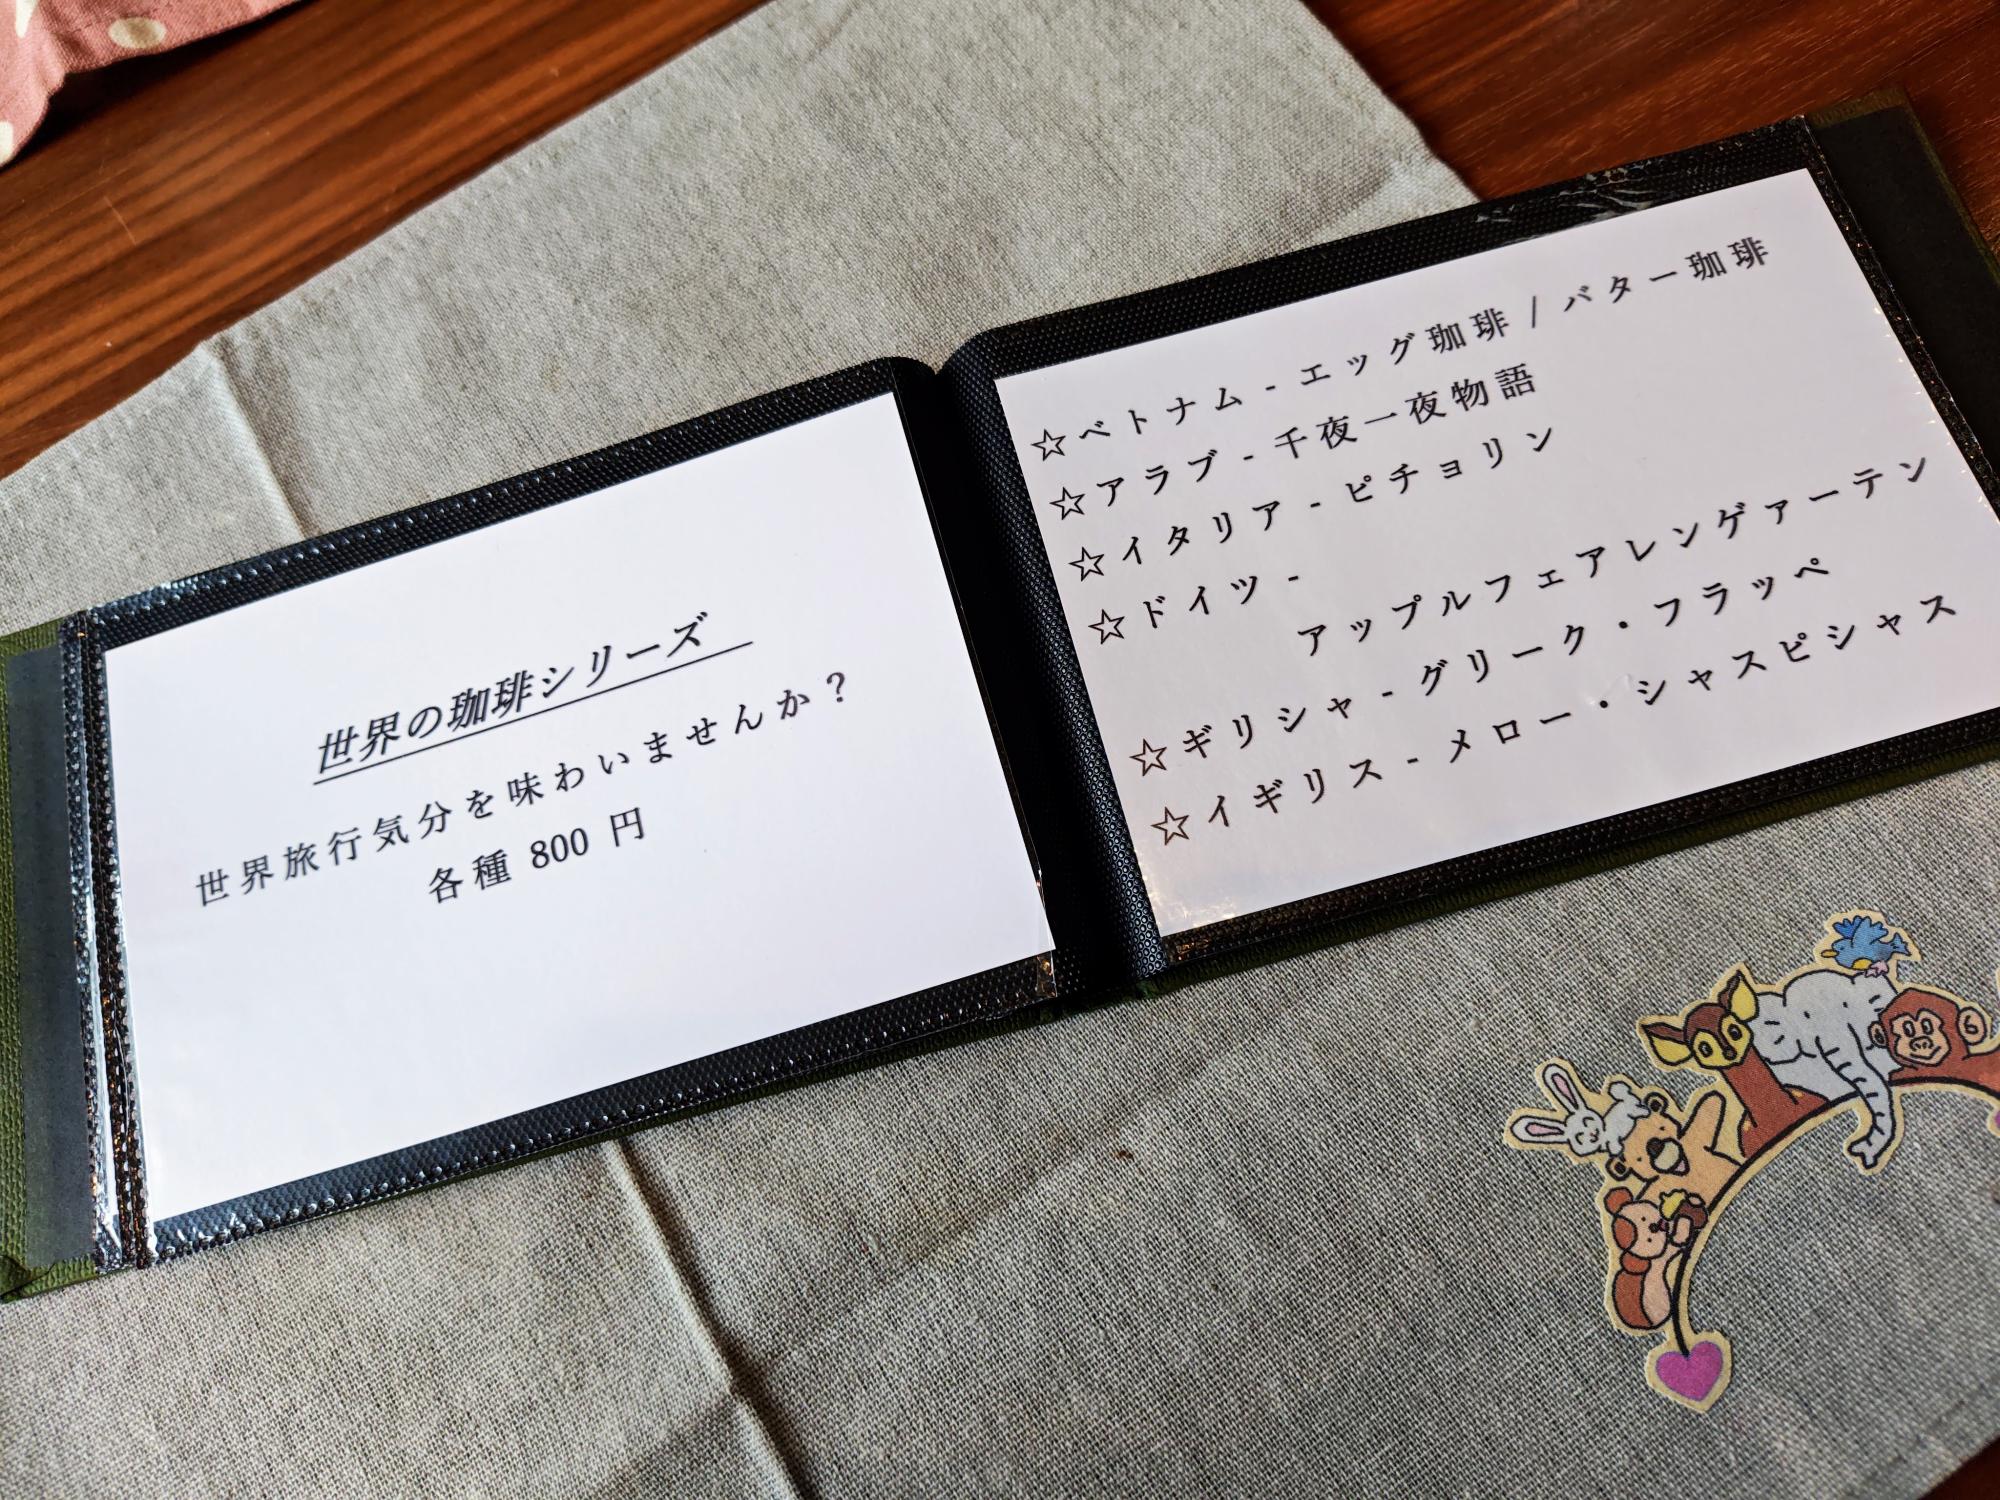 世界の珈琲シリーズ
世界旅行気分を味わいませんか？
各種 800 円
☆ベトナム - エッグ珈琲 / バター珈琲
☆アラブ - 千夜一夜物語
☆イタリア - ピチョリン
☆ドイツ -
アップルフェアレンゲァーテン
☆ギリシャ - グリーク・フラッペ
☆イギリス - メロー・シャスピシャス